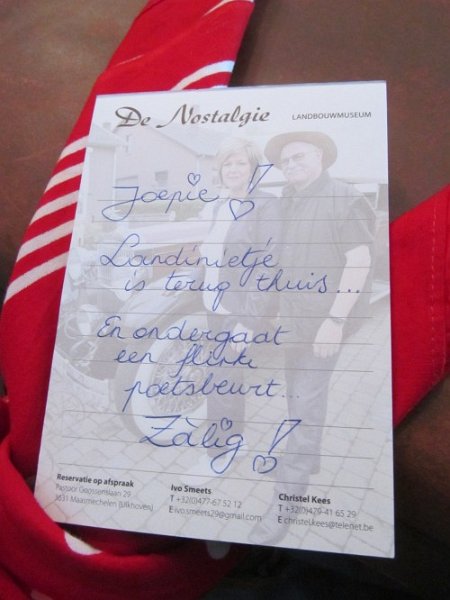 De Nostalgie LANDBOUWMUSEUM
Joepie!
Landinietje
is terug thuis...
En ondergaat
een flinke
poetsbeurt...
Zàlig!
Reservatie op afspraak
Pastoor Goossenslaan 29
3631 Maasmechelen (Uikhoven)
Ivo Smeets
T +32(0)477-67 52 12
E ivo.smeets29@gmail.com
Christel Kees
T +32(0)479-41 65 29
E christel.kees@telenet.be